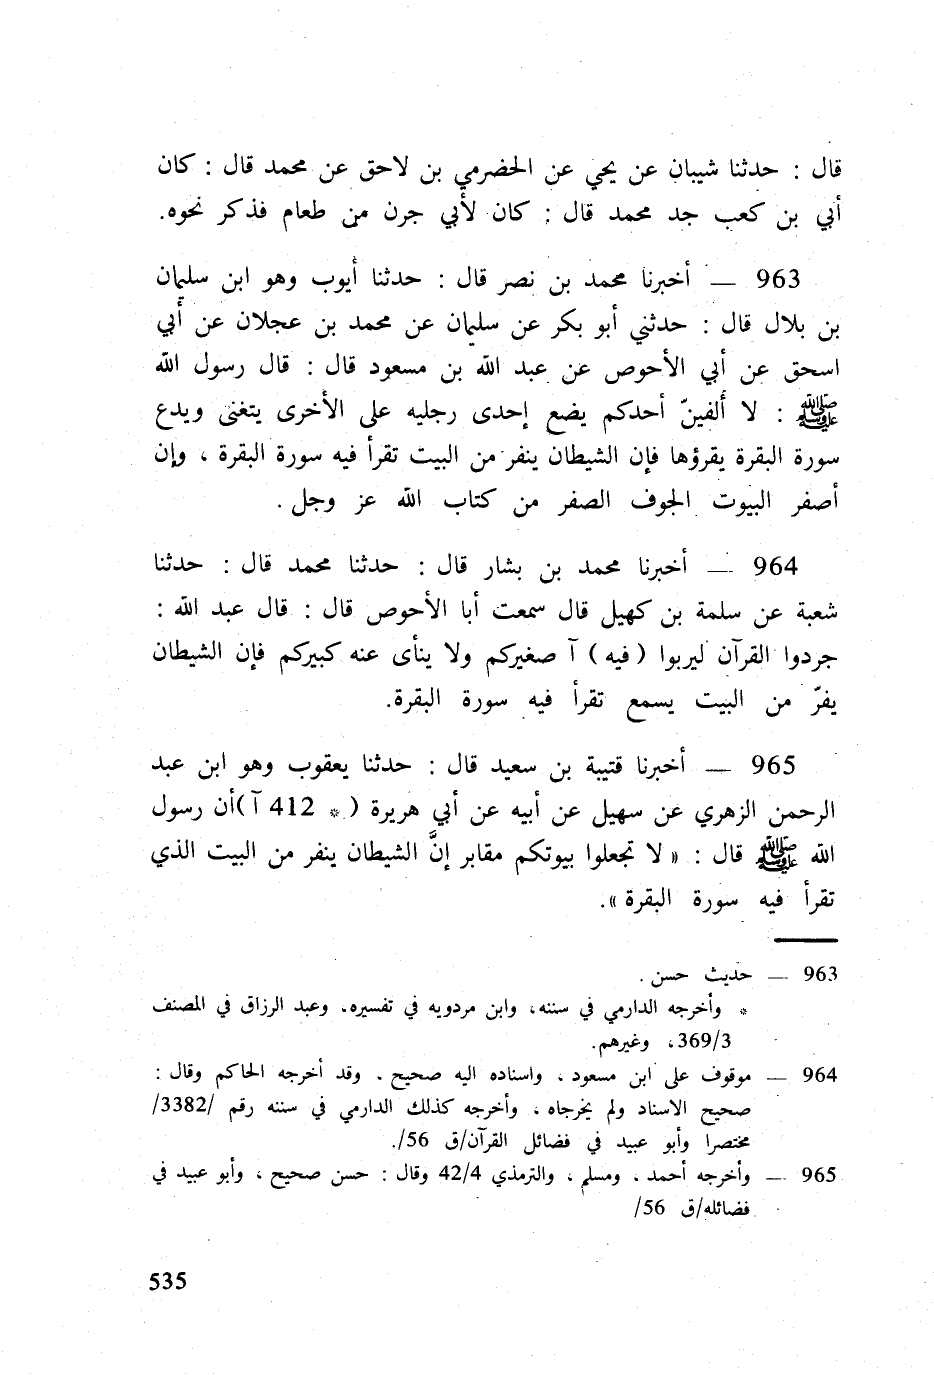 قال : حدثنا شيبان عن يحي عن الحضرمي بن لاحق عن محمد قال : كان
أبي بن كعب جد محمد قال : كان لأبي جرن من طعام فذكر نحوه.
963 — أخبرنا محمد بن نصر قال : حدثنا أيوب وهو ابن سليمان
بن بلال قال : حدثني أبو بكر عن سليمان عن محمد بن عجلان عن أبي
اسحق عن أبي الأحوص عن عبد الله بن مسعود قال : قال رسول الله
ﷺ : لا أُلفينّ أحدكم يضع إحدى رجليه على الأخرى يتغنى ويدع
سورة البقرة يقرؤها فإن الشيطان ينفر من البيت تقرأ فيه سورة البقرة ، وإن
أصفر البيوت الجوف الصفر من كتاب الله عز وجل .
964 — أخبرنا محمد بن بشار قال : حدثنا محمد قال : حدثنا
شعبة عن سلمة بن كهيل قال سمعت أبا الأحوص قال : قال عبد الله :
جردوا القرآن ليربوا ( فيه ) آ صغيركم ولا ينأى عنه كبيركم فإن الشيطان
يفرّ من البيت يسمع تقرأ فيه سورة البقرة.
965 — أخبرنا قتيبة بن سعيد قال : حدثنا يعقوب وهو ابن عبد
الرحمن الزهري عن سهيل عن أبيه عن أبي هريرة ( * 412 آ )أن رسول
الله ﷺ قال : « لا تجعلوا بيوتكم مقابر إنَّ الشيطان ينفر من البيت الذي
تقرأ فيه سورة البقرة ».
963 — حديث حسن .
* وأخرجه الدارمي في سننه، وابن مردويه في تفسيره. وعبد الرزاق في المصنف
369/3 ، وغيرهم.
964 — موقوف على ابن مسعود ، واسناده اليه صحيح . وقد أخرجه الحاكم وقال :
صحيح الاسناد ولم يخرجاه ، وأخرجه كذلك الدارمي في سننه رقم /3382/
مختصرا وأبو عبيد في فضائل القرآن/ق 56/.
965 — وأخرجه أحمد ، ومسلم ، والترمذي 42/4 وقال : حسن صحيح ، وأبو عبيد في
فضائله/ق 56/
535